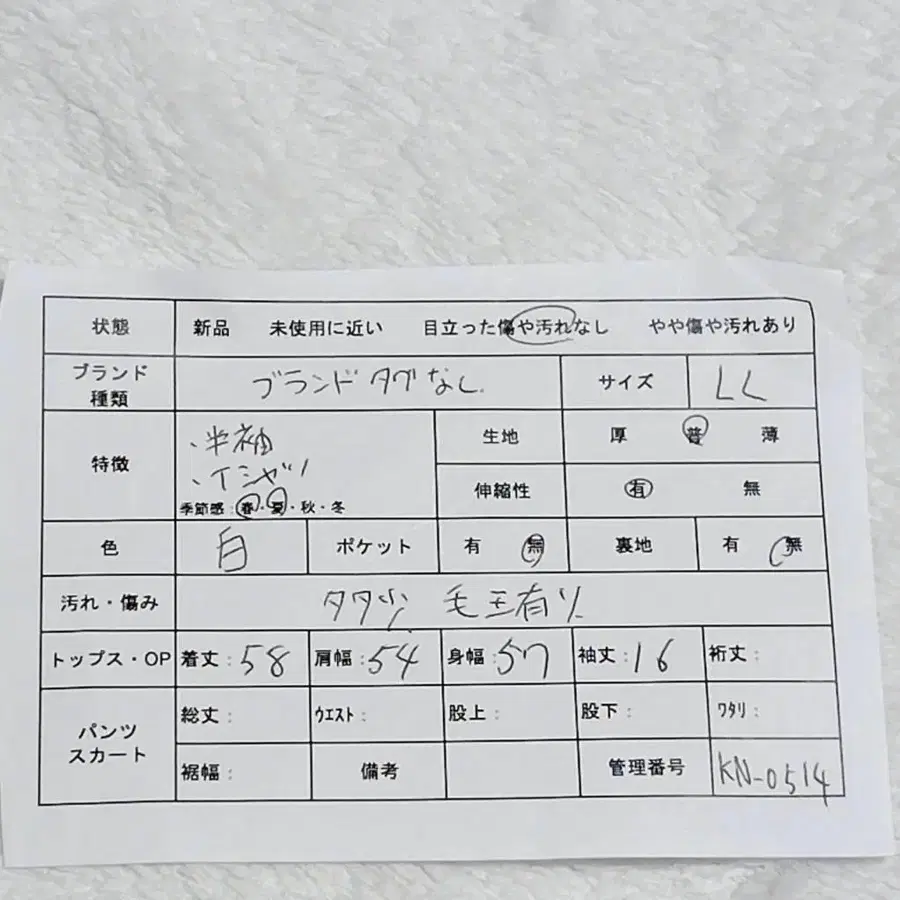 状態 新品 未使用に近い 目立った傷や汚れなし やや傷や汚れあり
ブランド種類 ブランドタグなし サイズ LL
特徴 ・半袖 生地 厚 普 薄
・Tシャツ 伸縮性 有 無
季節感:春・夏・秋・冬
色 白 ポケット 有 無 裏地 有 無
汚れ・傷み 毛玉有り
トップス・OP 着丈:58 肩幅:54 身幅:57 袖丈:16 裄丈:
パンツ スカート 総丈: ウエスト: 股上: 股下: ワタリ:
裾幅: 備考 管理番号 KN-0514